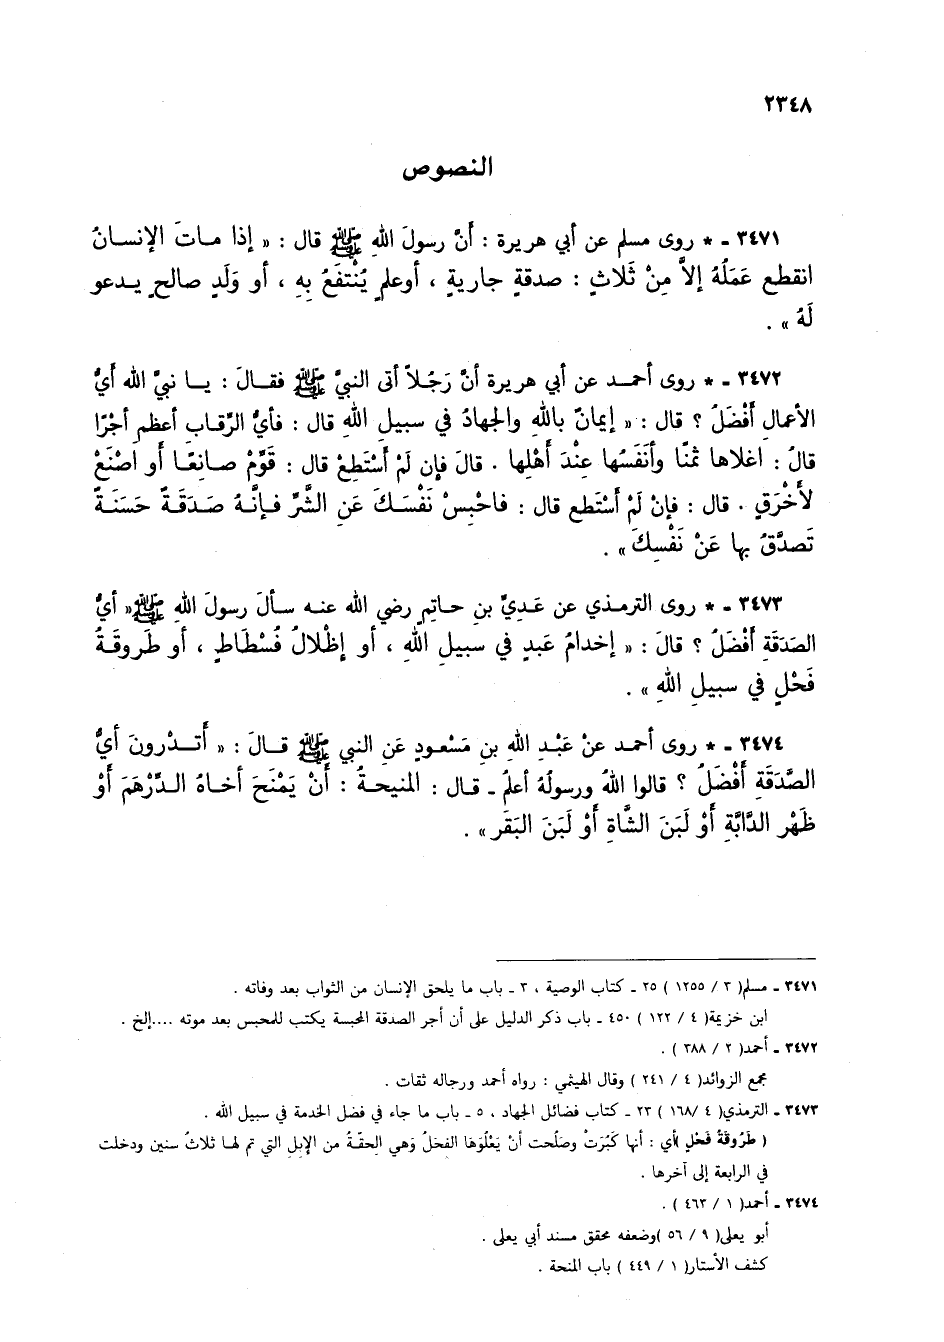 ٢٣٤٨
النصوص
٣٤٧١ ـ * روى مسلم عن أبي هريرة : أَنَّ رسولَ اللهِ ﷺ قال : « إذا مـاتَ الإنسـانُ
انقطع عَمَلُهُ إلاَّ مِنْ ثَلاثٍ : صدقةٍ جاريةٍ ، أوعلمٍ يُنْتفَعُ بِهِ ، أو وَلَدٍ صالحٍ يـدعو
لَهُ » .
٣٤٧٢ ـ * روى أحمـد عن أبي هريرة أنَّ رَجُلاً أتى النبيَّ ﷺ فقـالَ : يـا نبيَّ الله أَيُّ
الأعمالِ أَفْضَلُ ؟ قال : « إيمانٌ باللهِ والجهادُ في سبيل اللهِ قال : فأيُّ الرِّقابِ أعظم أجْرًا
قالُ : اغلاها ثمنًا وأَنفَسُها عِنْدَ أَهْلِها . قالَ فإن لَمْ أَسْتَطِعْ قال : قَوِّمْ صـانِعًـا أو اصْنَعْ
لأَخْرَقٍ . قال : فإنْ لَمْ أَسْتَطع قال : فاحْبِسْ نَفْسَـكَ عَنِ الشَّرِّ فـإنَّـهُ صَدَقَـةٌ حَسَنَـةٌ
تَصدَّقُ بها عَنْ نَفْسِكَ» .
٣٤٧٣ ـ * روى الترمذي عن عَـدِيِّ بنِ حـاتمٍ رضي الله عنـه سـألَ رسولَ اللهِ ﷺ« أيُّ
الصَدَقَةِ أَفْضَلُ ؟ قالَ : « إخدامُ عَبدٍ في سبيلِ اللهِ ، أو إظْلالُ فُسْطَاطٍ ، أو طَروقَـةُ
فَحْلٍ في سبيلِ اللهِ » .
٣٤٧٤ ـ * روى أحمد عنْ عَبْـدِ اللهِ بنِ مَسْعـودٍ عَنِ النبي ﷺ قـالَ : « أَتـدْرونَ أيُّ
الصَّدَقَةِ أَفْضَلُ ؟ قالوا اللهُ ورسولُهُ أعلمُ ـ قـال : المنيحـةُ : أَنْ يَمْنَحَ أخـاهُ الـدِّرْهَمَ أوْ
ظَهْرَ الدَّابَّةِ أَوْ لَبَنَ الشَّاةِ أَوْ لَبَنَ البَقَر» .
٣٤٧١ ـ مسلم( ٣ / ١٢٥٥ ) ٢٥ ـ كتاب الوصية ، ٣ ـ باب ما يلحق الإنسان من الثواب بعد وفاته .
ابن خزيمة( ٤ / ١٢٢ ) ٤٥٠ ـ باب ذكر الدليل على أن أجر الصدقة المحبسة يكتب للمحبس بعد موته ....إلخ .
٣٤٧٢ ـ أحمد( ٢ / ٣٨٨ ) .
مجمع الزوائد( ٤ / ٢٤١ ) وقال الهيثمي : رواه أحمد ورجاله ثقات .
٣٤٧٣ ـ الترمذي( ٤ /١٦٨ ) ٢٣ ـ كتاب فضائل الجهاد ، ٥ ـ باب ما جاء في فضل الخدمة في سبيل الله .
( طَرُوقَةُ فَحْلٍ )أي : أنها كَبُرَتْ وصَلُحت أنْ يَعْلُوَهَا الفَحلُ وَهي الحِقّـةُ من الإبل التي تم لهـا ثلاثُ سنين ودخلت
في الرابعة إلى آخرها .
٣٤٧٤ ـ أحمد( ١ / ٤٦٣ ) .
أبو يعلى( ٩ / ٥٦ )وضعفه محقق مسند أبي يعلى .
كشف الأستار( ١ / ٤٤٩ ) باب المنحة .